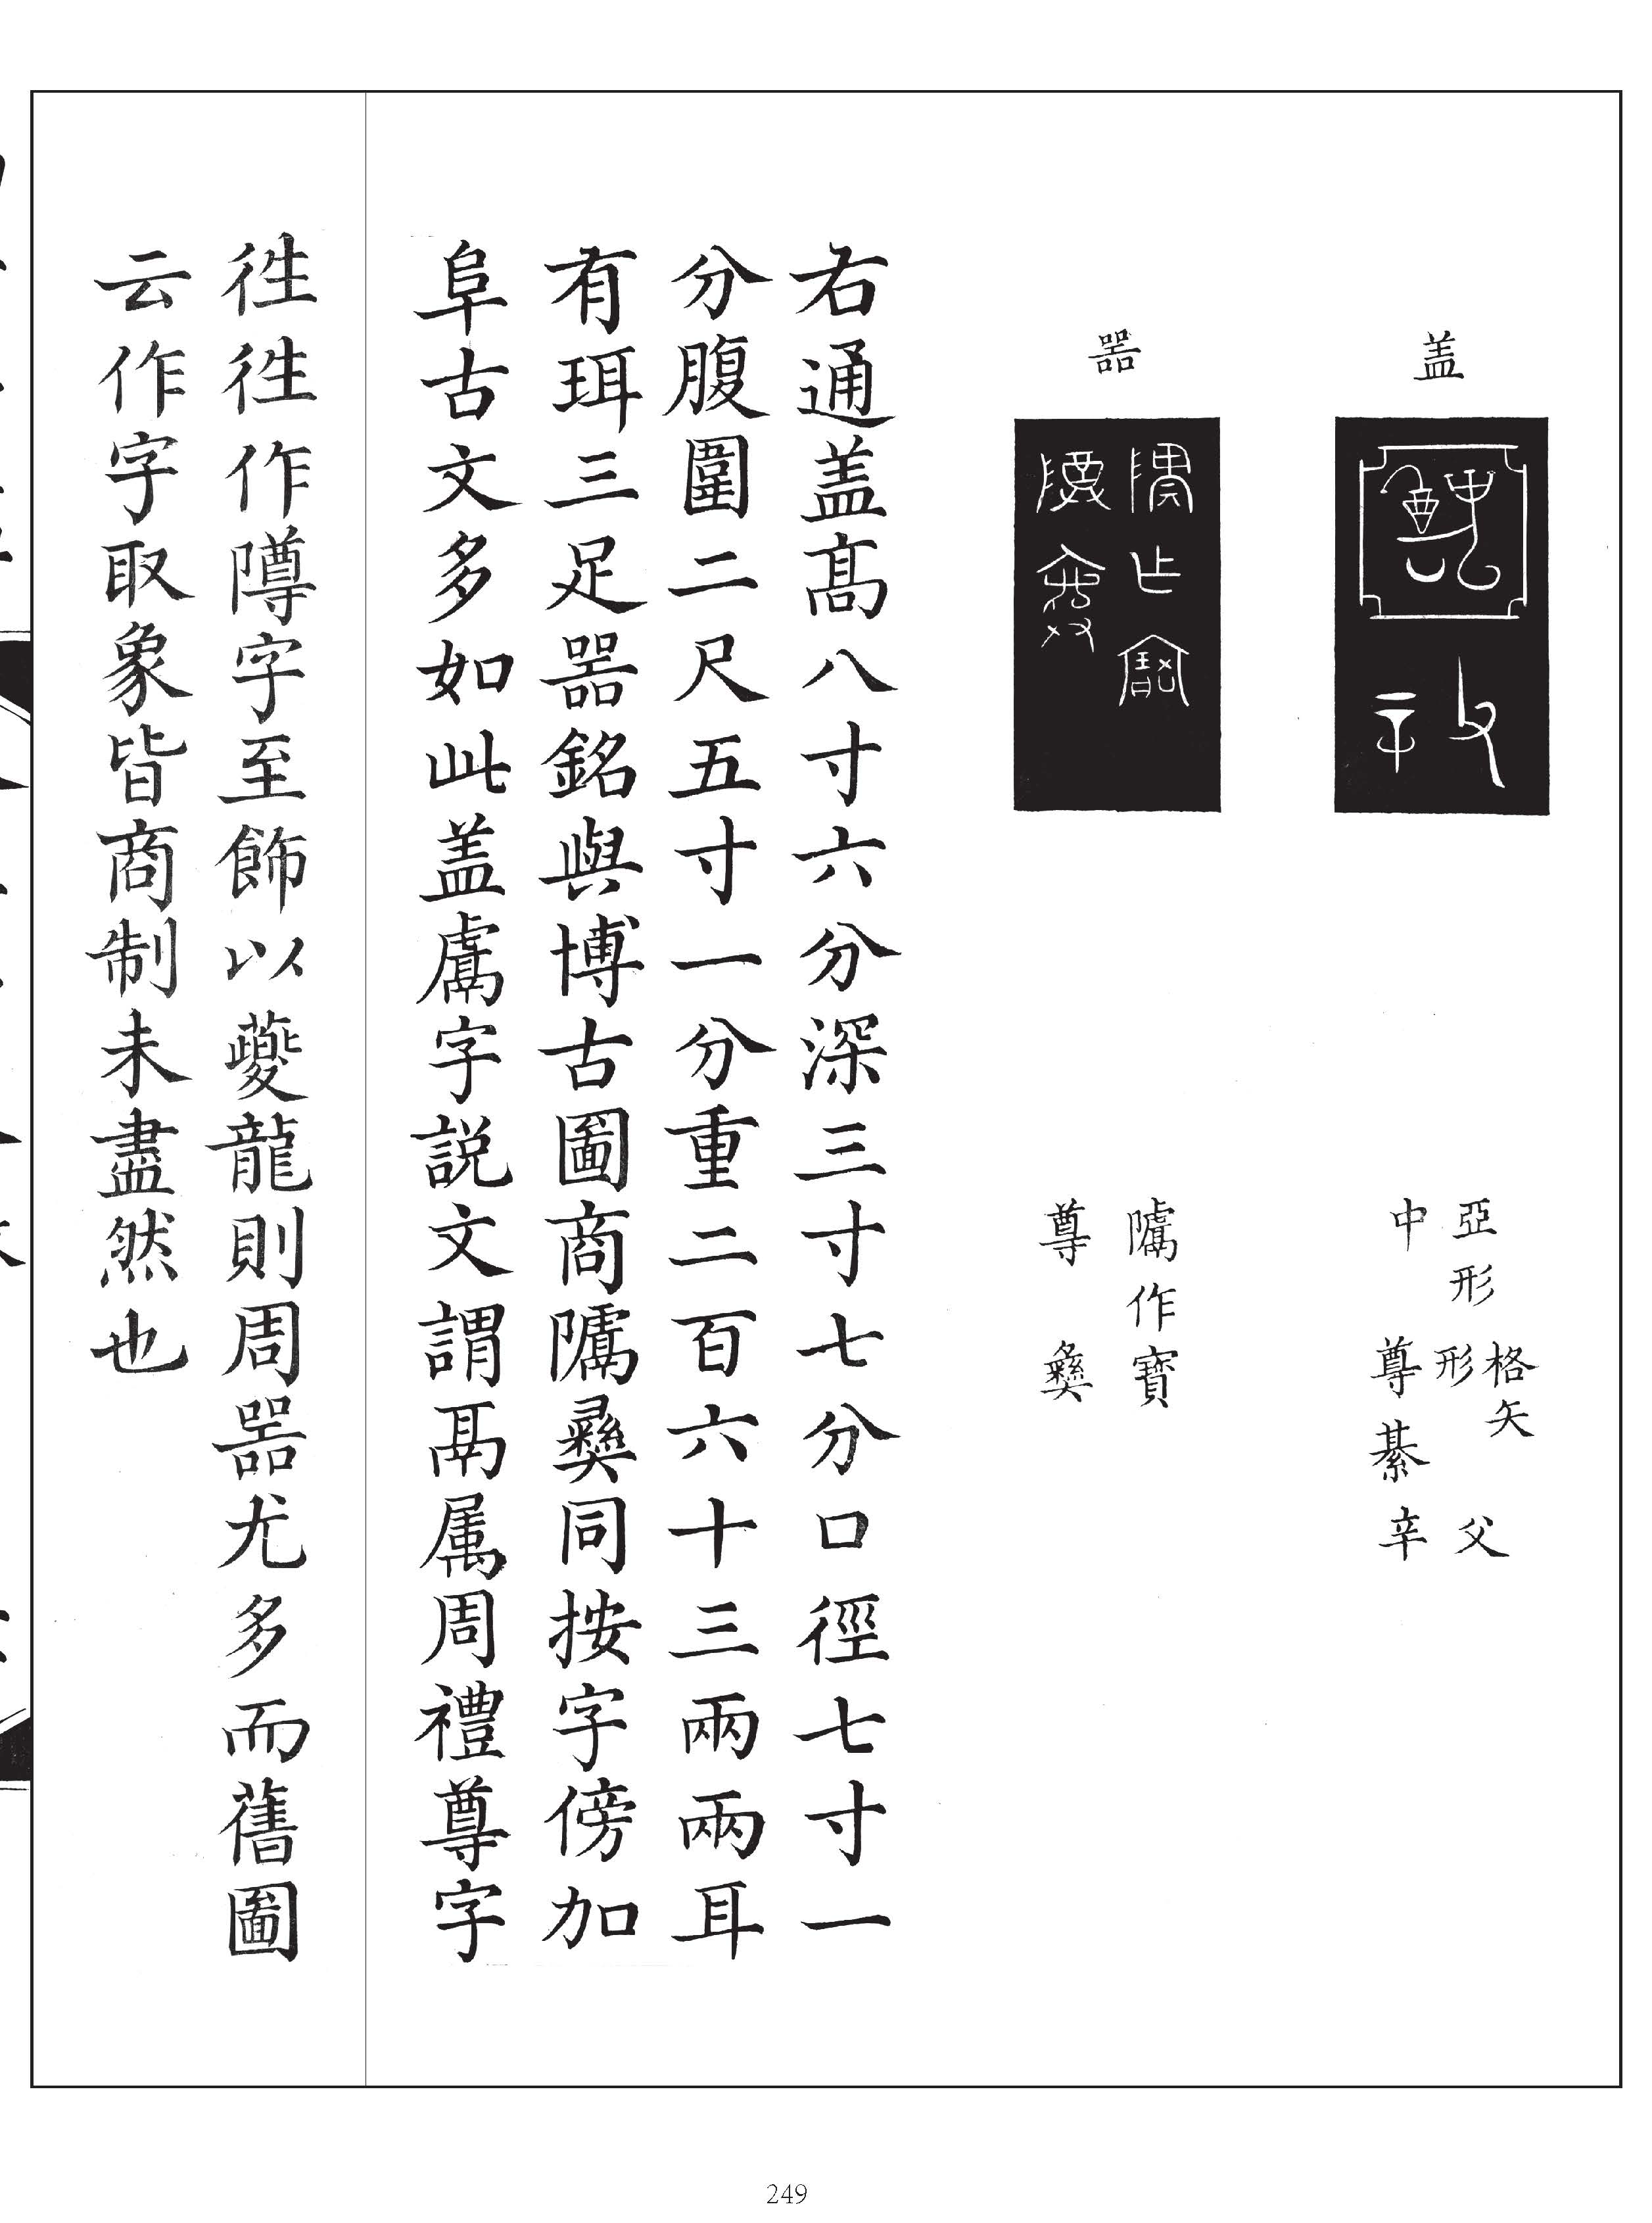 盖
亞形
中
格矢
形
尊綦
父
辛
器
隯作寶
尊彝
右通盖髙八寸六分深三寸七分口徑七寸一
分腹圍二尺五寸一分重二百六十三兩兩耳
有珥三足器銘與博古圖商彝同按字傍加
阜古文多如此盖鬳字説文謂鬲属周禮尊字
徃徃作隫字至飾以夔龍則周器尤多而舊圖
云作字取象皆商制未盡然也
249